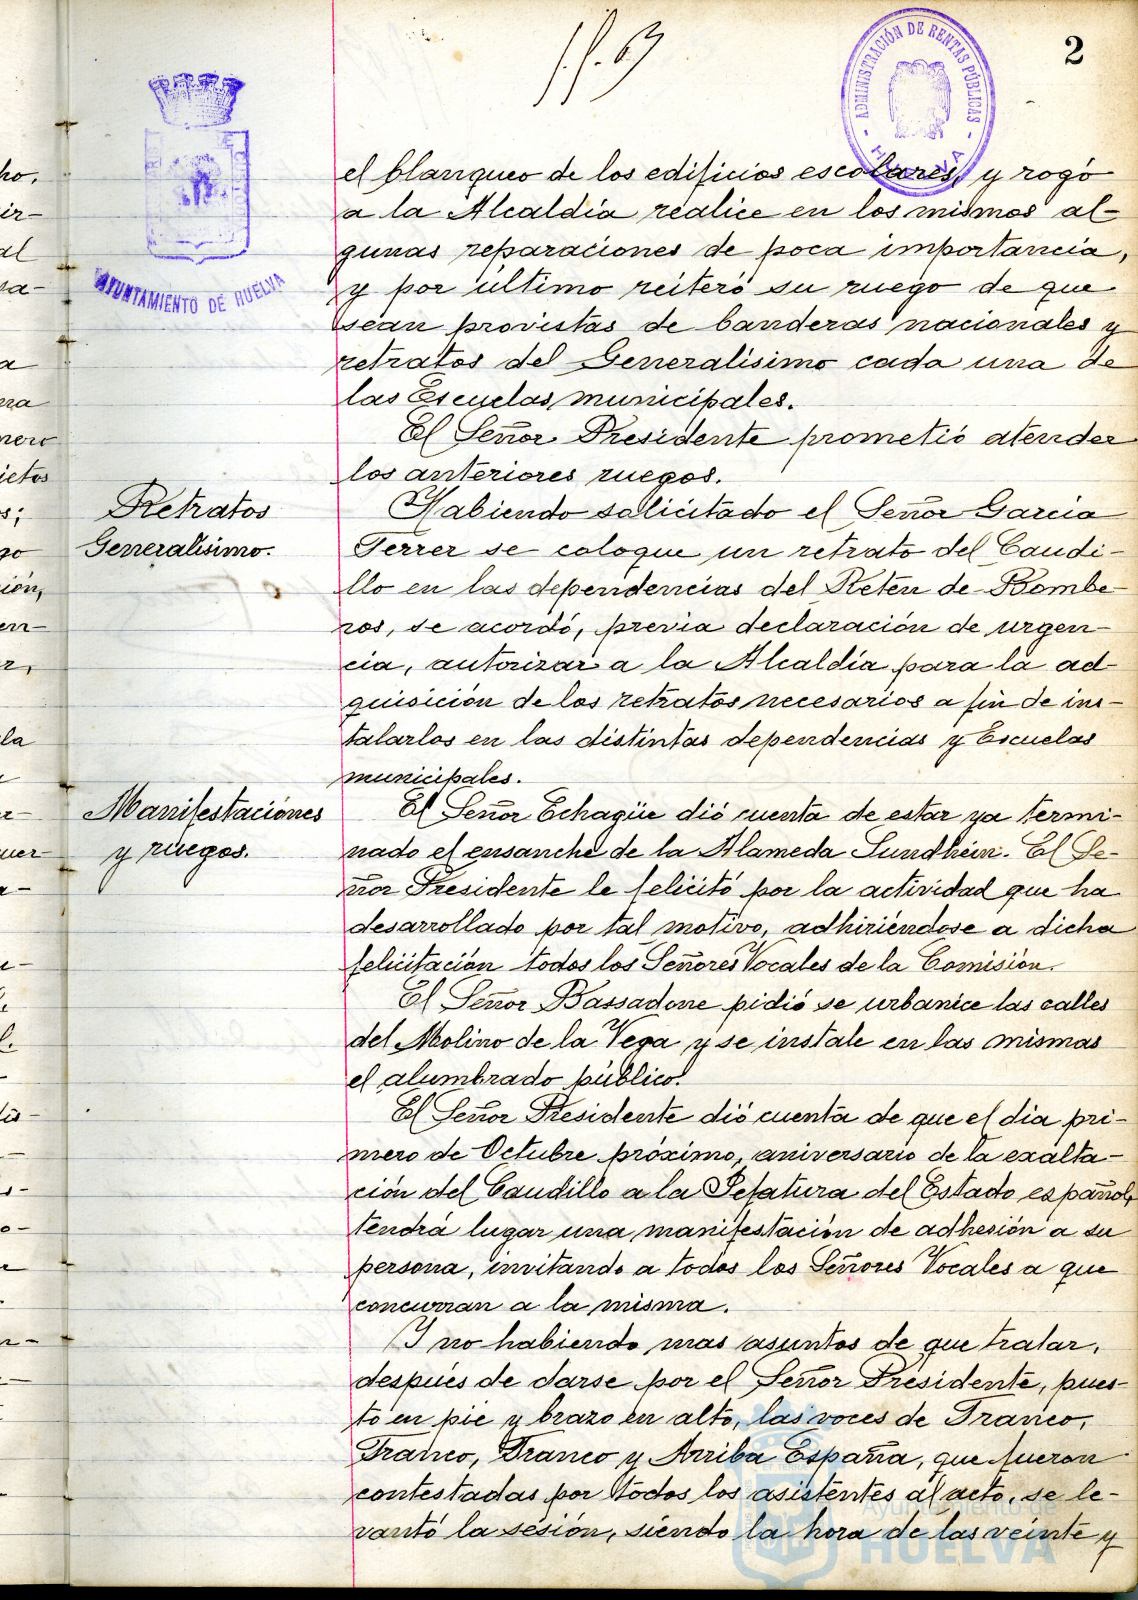 2
ADMINISTRACIÓN DE RENTAS PÚBLICAS
HUELVA
AYUNTAMIENTO DE HUELVA
el blanqueo de los edificios escolares, y rogó
a la Alcaldía realice en los mismos al-
gunas reparaciones de poca importancia,
y por último reiteró su ruego de que
sean provistas de banderas nacionales y
retratos del Generalísimo cada una de
las Escuelas municipales.
El Señor Presidente prometió atender
los anteriores ruegos.
Retratos
Generalísimo.
Habiendo solicitado el Señor Garcia
Ferrer se coloque un retrato del Caudi-
llo en las dependencias del Retén de Bombe-
ros, se acordó, previa declaración de urgen-
cia, autorizar a la Alcaldía para la ad-
quisición de los retratos necesarios a fin de ins-
talarlos en las distintas dependencias y Escuelas
municipales.
Manifestaciónes
y ruegos.
El Señor Echagüe dió cuenta de estar ya termi-
nado el ensanche de la Alameda Sundhein. El Se-
ñor Presidente le felicitó por la actividad que ha
desarrollado por tal motivo, adhiriéndose a dicha
felicitación todos los Señores Vocales de la Comisión.
El Señor Bassadone pidió se urbanice las calles
del Molino de la Vega y se instale en las mismas
el alumbrado público.
El Señor Presidente dió cuenta de que el dia pri-
mero de Octubre próximo, aniversario de la exalta-
ción del Caudillo a la Jefatura del Estado español,
tendrá lugar una manifestación de adhesión a su
persona, invitando a todos los Señores Vocales a que
concurran a la misma.
Y no habiendo mas asuntos de que tratar,
después de darse por el Señor Presidente, pues-
to en pie y brazo en alto, las voces de Franco,
Franco, Franco y Arriba España, que fueron
contestadas por todos los asistentes al acto, se le-
vantó la sesión, siendo la hora de las veinte y
Ayuntamiento de
HUELVA